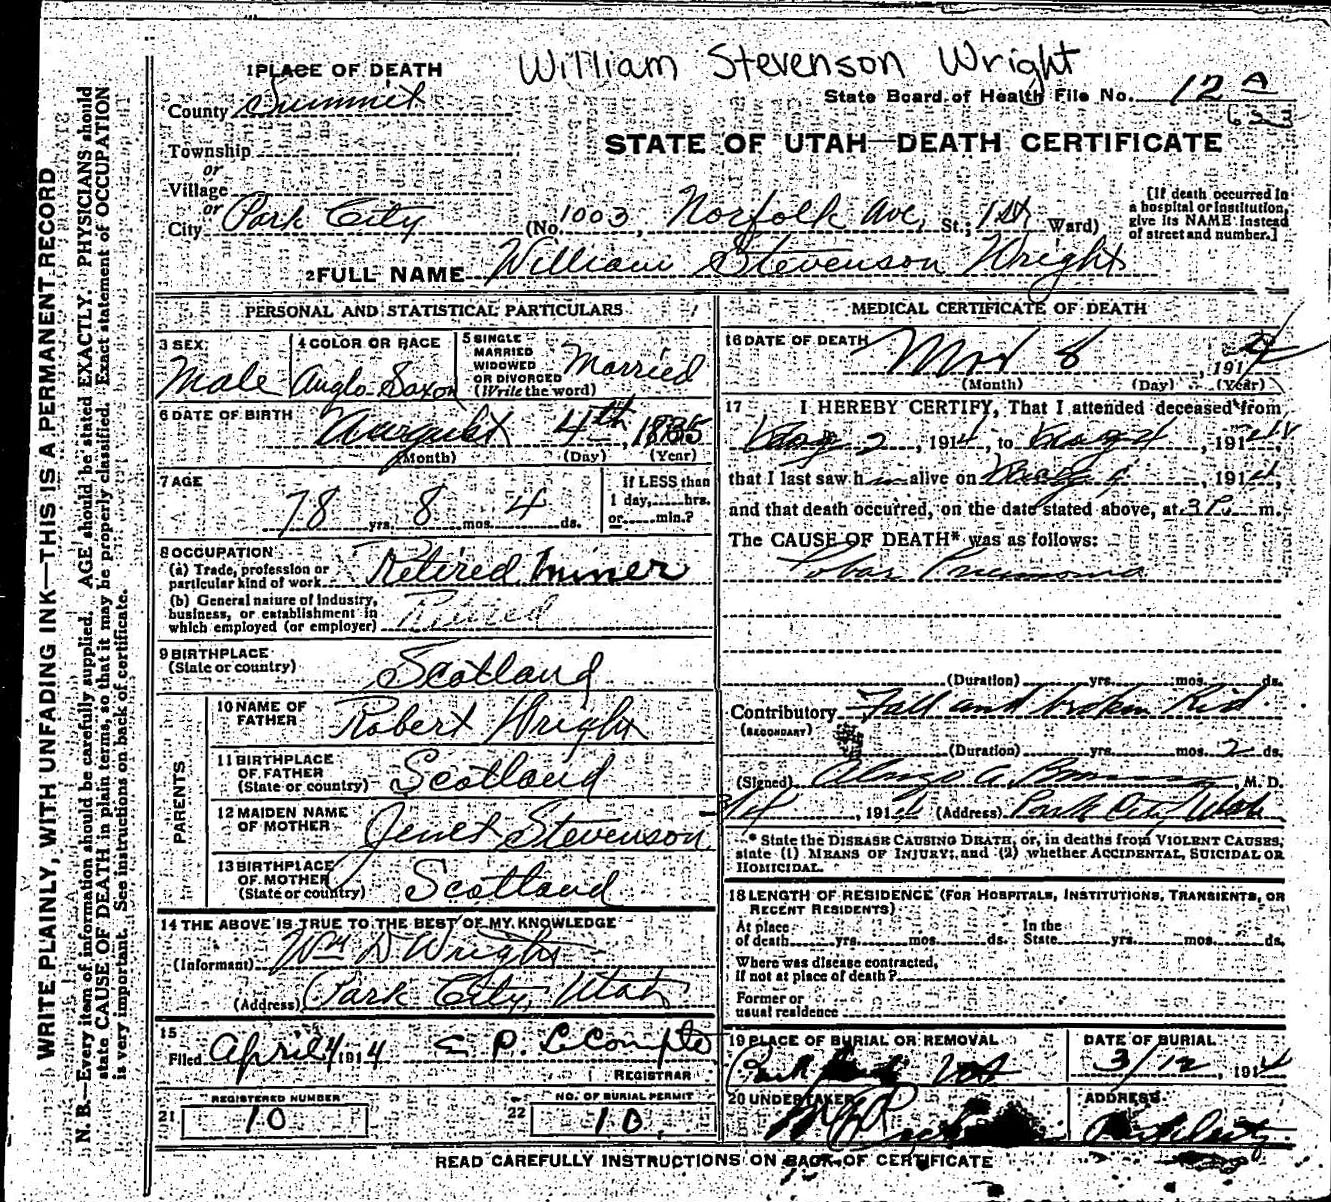 William Stevenson Wright
1 PLACE OF DEATH
County Summit
State Board of Health File No. 12 A
STATE OF UTAH—DEATH CERTIFICATE
Township
or
Village
or
City Park City (No. 1003, Norfolk Ave, St.; 1st Ward)
[If death occurred in a hospital or institution, give its NAME instead of street and number.]
2 FULL NAME William Stevenson Wright
PERSONAL AND STATISTICAL PARTICULARS
3 SEX
Male
4 COLOR OR RACE
Anglo Saxon
5 SINGLE MARRIED WIDOWED OR DIVORCED (Write the word)
Married
6 DATE OF BIRTH
August 4th, 1835
(Month) (Day) (Year)
7 AGE
78 yrs. 8 mos. 4 ds.
If LESS than 1 day,......hrs. or......min.?
8 OCCUPATION
(a) Trade, profession or particular kind of work Retired Miner
(b) General nature of industry, business, or establishment in which employed (or employer) Retired
9 BIRTHPLACE (State or country) Scotland
PARENTS
10 NAME OF FATHER Robert Wright
11 BIRTHPLACE OF FATHER (State or country) Scotland
12 MAIDEN NAME OF MOTHER Jenet Stevenson
13 BIRTHPLACE OF MOTHER (State or country) Scotland
14 THE ABOVE IS TRUE TO THE BEST OF MY KNOWLEDGE
(Informant) Wm D Wright
(Address) Park City, Utah
15
Filed April 4 1914 P. LeCompte
REGISTRAR
REGISTERED NUMBER
21 10
NO. OF BURIAL PERMIT
22 10
MEDICAL CERTIFICATE OF DEATH
16 DATE OF DEATH
8, 1914
(Month) (Day) (Year)
17 I HEREBY CERTIFY, That I attended deceased from
2, 1914, to 1914
that I last saw h alive on 1914,
and that death occurred, on the date stated above, at 3 P. m.
The CAUSE OF DEATH* was as follows:
Lobar Pneumonia
(Duration) yrs. mos. ds.
Contributory Fall and broken Rib
(SECONDARY)
(Duration) yrs. mos. 2 ds.
(Signed) M. D.
191 (Address) Park City Utah
* State the DISEASE CAUSING DEATH, or, in deaths from VIOLENT CAUSES, state (1) MEANS OF INJURY; and (2) whether ACCIDENTAL, SUICIDAL OR HOMICIDAL.
18 LENGTH OF RESIDENCE (FOR HOSPITALS, INSTITUTIONS, TRANSIENTS, OR RECENT RESIDENTS)
At place of death yrs. mos. ds. In the State yrs. mos. ds.
Where was disease contracted, if not at place of death?
Former or usual residence
19 PLACE OF BURIAL OR REMOVAL
Park
DATE OF BURIAL
3/12, 1914
20 UNDERTAKER
ADDRESS
Park City
READ CAREFULLY INSTRUCTIONS ON BACK OF CERTIFICATE
WRITE PLAINLY, WITH UNFADING INK—THIS IS A PERMANENT RECORD
N. B.—Every item of information should be carefully supplied. AGE should be stated EXACTLY. PHYSICIANS should
state CAUSE OF DEATH in plain terms, so that it may be properly classified. Exact statement of OCCUPATION
is very important. See instructions on back of certificate.